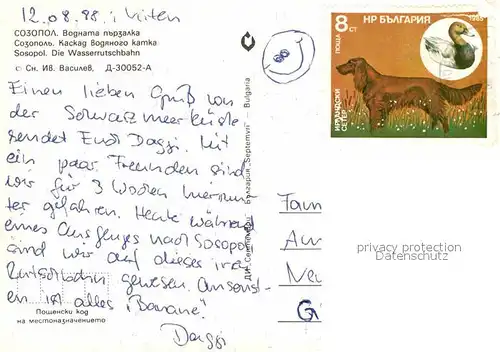 12.08.88, Kiten
СОЗОПОЛ. Водната пързалка
Созополь. Каскад водяного катка
Sosopol. Die Wasserrutschbahn
© Сн. Ив. Василев, Д-30052-А
Einen lieben Gruß von
der Schwarzmeerküste
sendet Euch Daggi. Mit
ein paar Freunden sind
wir für 3 Wochen hierrunter
gefahren. Heute während
eines Ausfluges nach Sosopol
sind wir auf dieses
Rutschbahn gewesen. Ansonsten
ist alles „Banane".
Daggi
Пощенски код
на местоназначението
ДИ „Септември" · България „Septemvri" - Bulgaria
8 СТ
НР БЪЛГАРИЯ
1985
ПОЩА
ИРЛАНДСКИ
СЕТЕР
Fam
Ne
privacy protection
Datenschutz